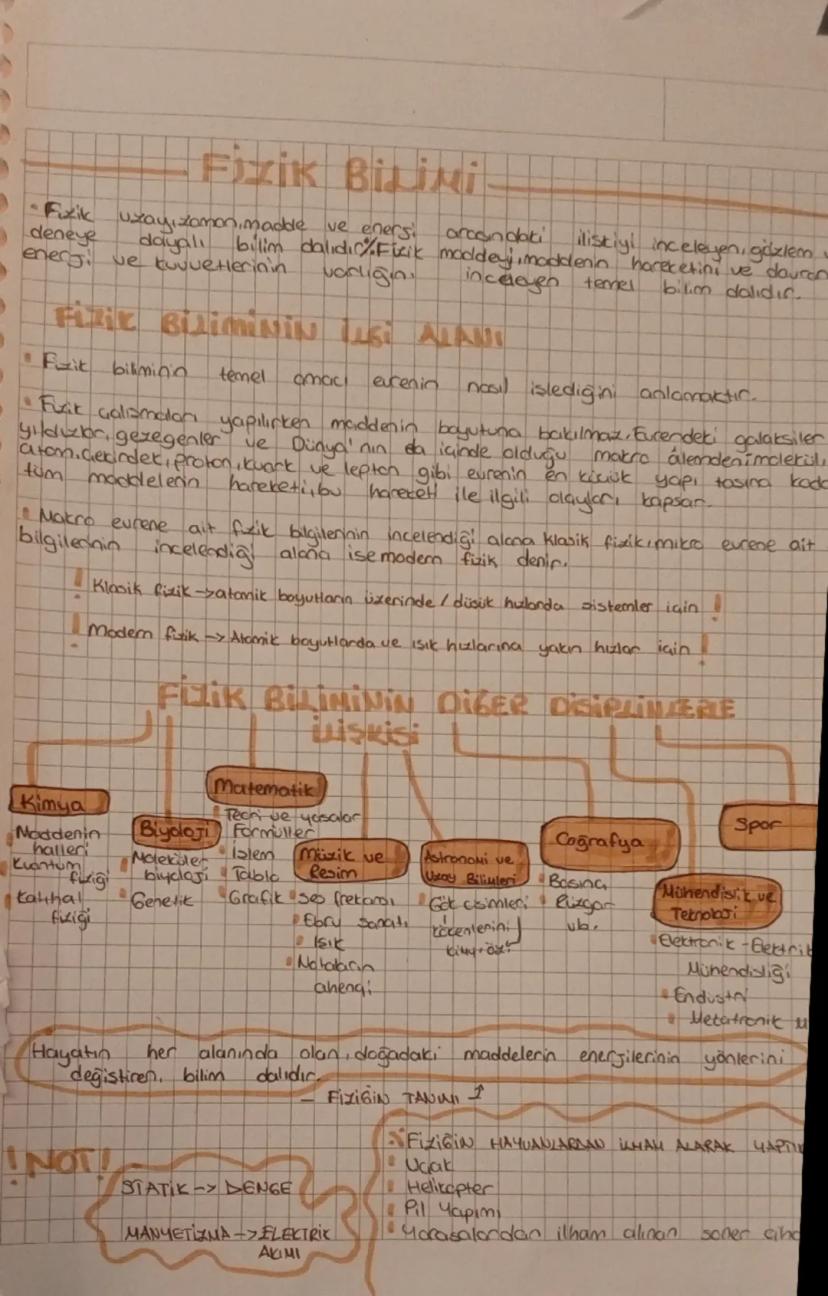 FİZİK BİLİMİ
• Fizik uzayı,zamanı,madde ve enerji arasındaki ilişkiyi inceleyen,gözlem
deneye dayalı bilim dalıdır. Fizik maddeyi,maddenin hareketini ve davran
enerji ve kuvvetlerinin varlığını inceleyen temel bilim dalıdır.
FİZİK BİLİMİNİN İLGİ ALANI
• Fizik biliminin temel amacı evrenin nasıl işlediğini anlamaktır.
• Fizik çalışmaları yapılırken maddenin boyutuna bakılmaz. Evrendeki galaksiler
yıldızlar,gezegenler ve Dünya'nın da içinde olduğu makro âlemden,molekül,
atom,çekirdek,proton,kuark ve lepton gibi evrenin en küçük yapı taşına kada
tüm maddelerin hareketi,bu hareket ile ilgili olayları kapsar.
• Makro evrene ait fizik bilgilerinin incelendiği alana klasik fizik,mikro evrene ait
bilgilerinin incelendiği alana ise modern fizik denir.
! Klasik fizik -> atomik boyutların üzerinde / düşük hızlarda sistemler için !
! Modern fizik -> Atomik boyutlarda ve ışık hızlarına yakın hızlar için !
FİZİK BİLİMİNİN DİĞER DİSİPLİNLERLE
İLİŞKİSİ
Kimya
• Maddenin
halleri
• Kuantum
fiziği
• Katıhal
fiziği
Biyoloji
• Moleküler
biyoloji
• Genetik
Matematik
• Teori ve yasalar
• Formüller
• İşlem
• Tablo
• Grafik
Müzik ve
Resim
• Ses frekansı
• Ebru sanatı
• Işık
• Notaların
ahengi
Astronomi ve
Uzay Bilimleri
• Gök cisimleri
kökenlerini
Coğrafya
• Basınç
• Rüzgar
vb.
Mühendislik ve
Teknoloji
• Elektronik - Elektrik
Mühendisliği
• Endüstri
• Metatronik
Spor
Hayatın her alanında olan,doğadaki maddelerin enerjilerinin yönlerini
değiştiren, bilim dalıdır.
— FİZİĞİN TANIMI ↑
! NOT !
STATİK -> DENGE
MANYETİZMA -> ELEKTRİK
AKIMI
FİZİĞİN HAYVANLARDAN İLHAM ALARAK YAPTI
• Uçak
• Helikopter
• Pil Yapımı
• Yarasalardan ilham alınan soner ciha